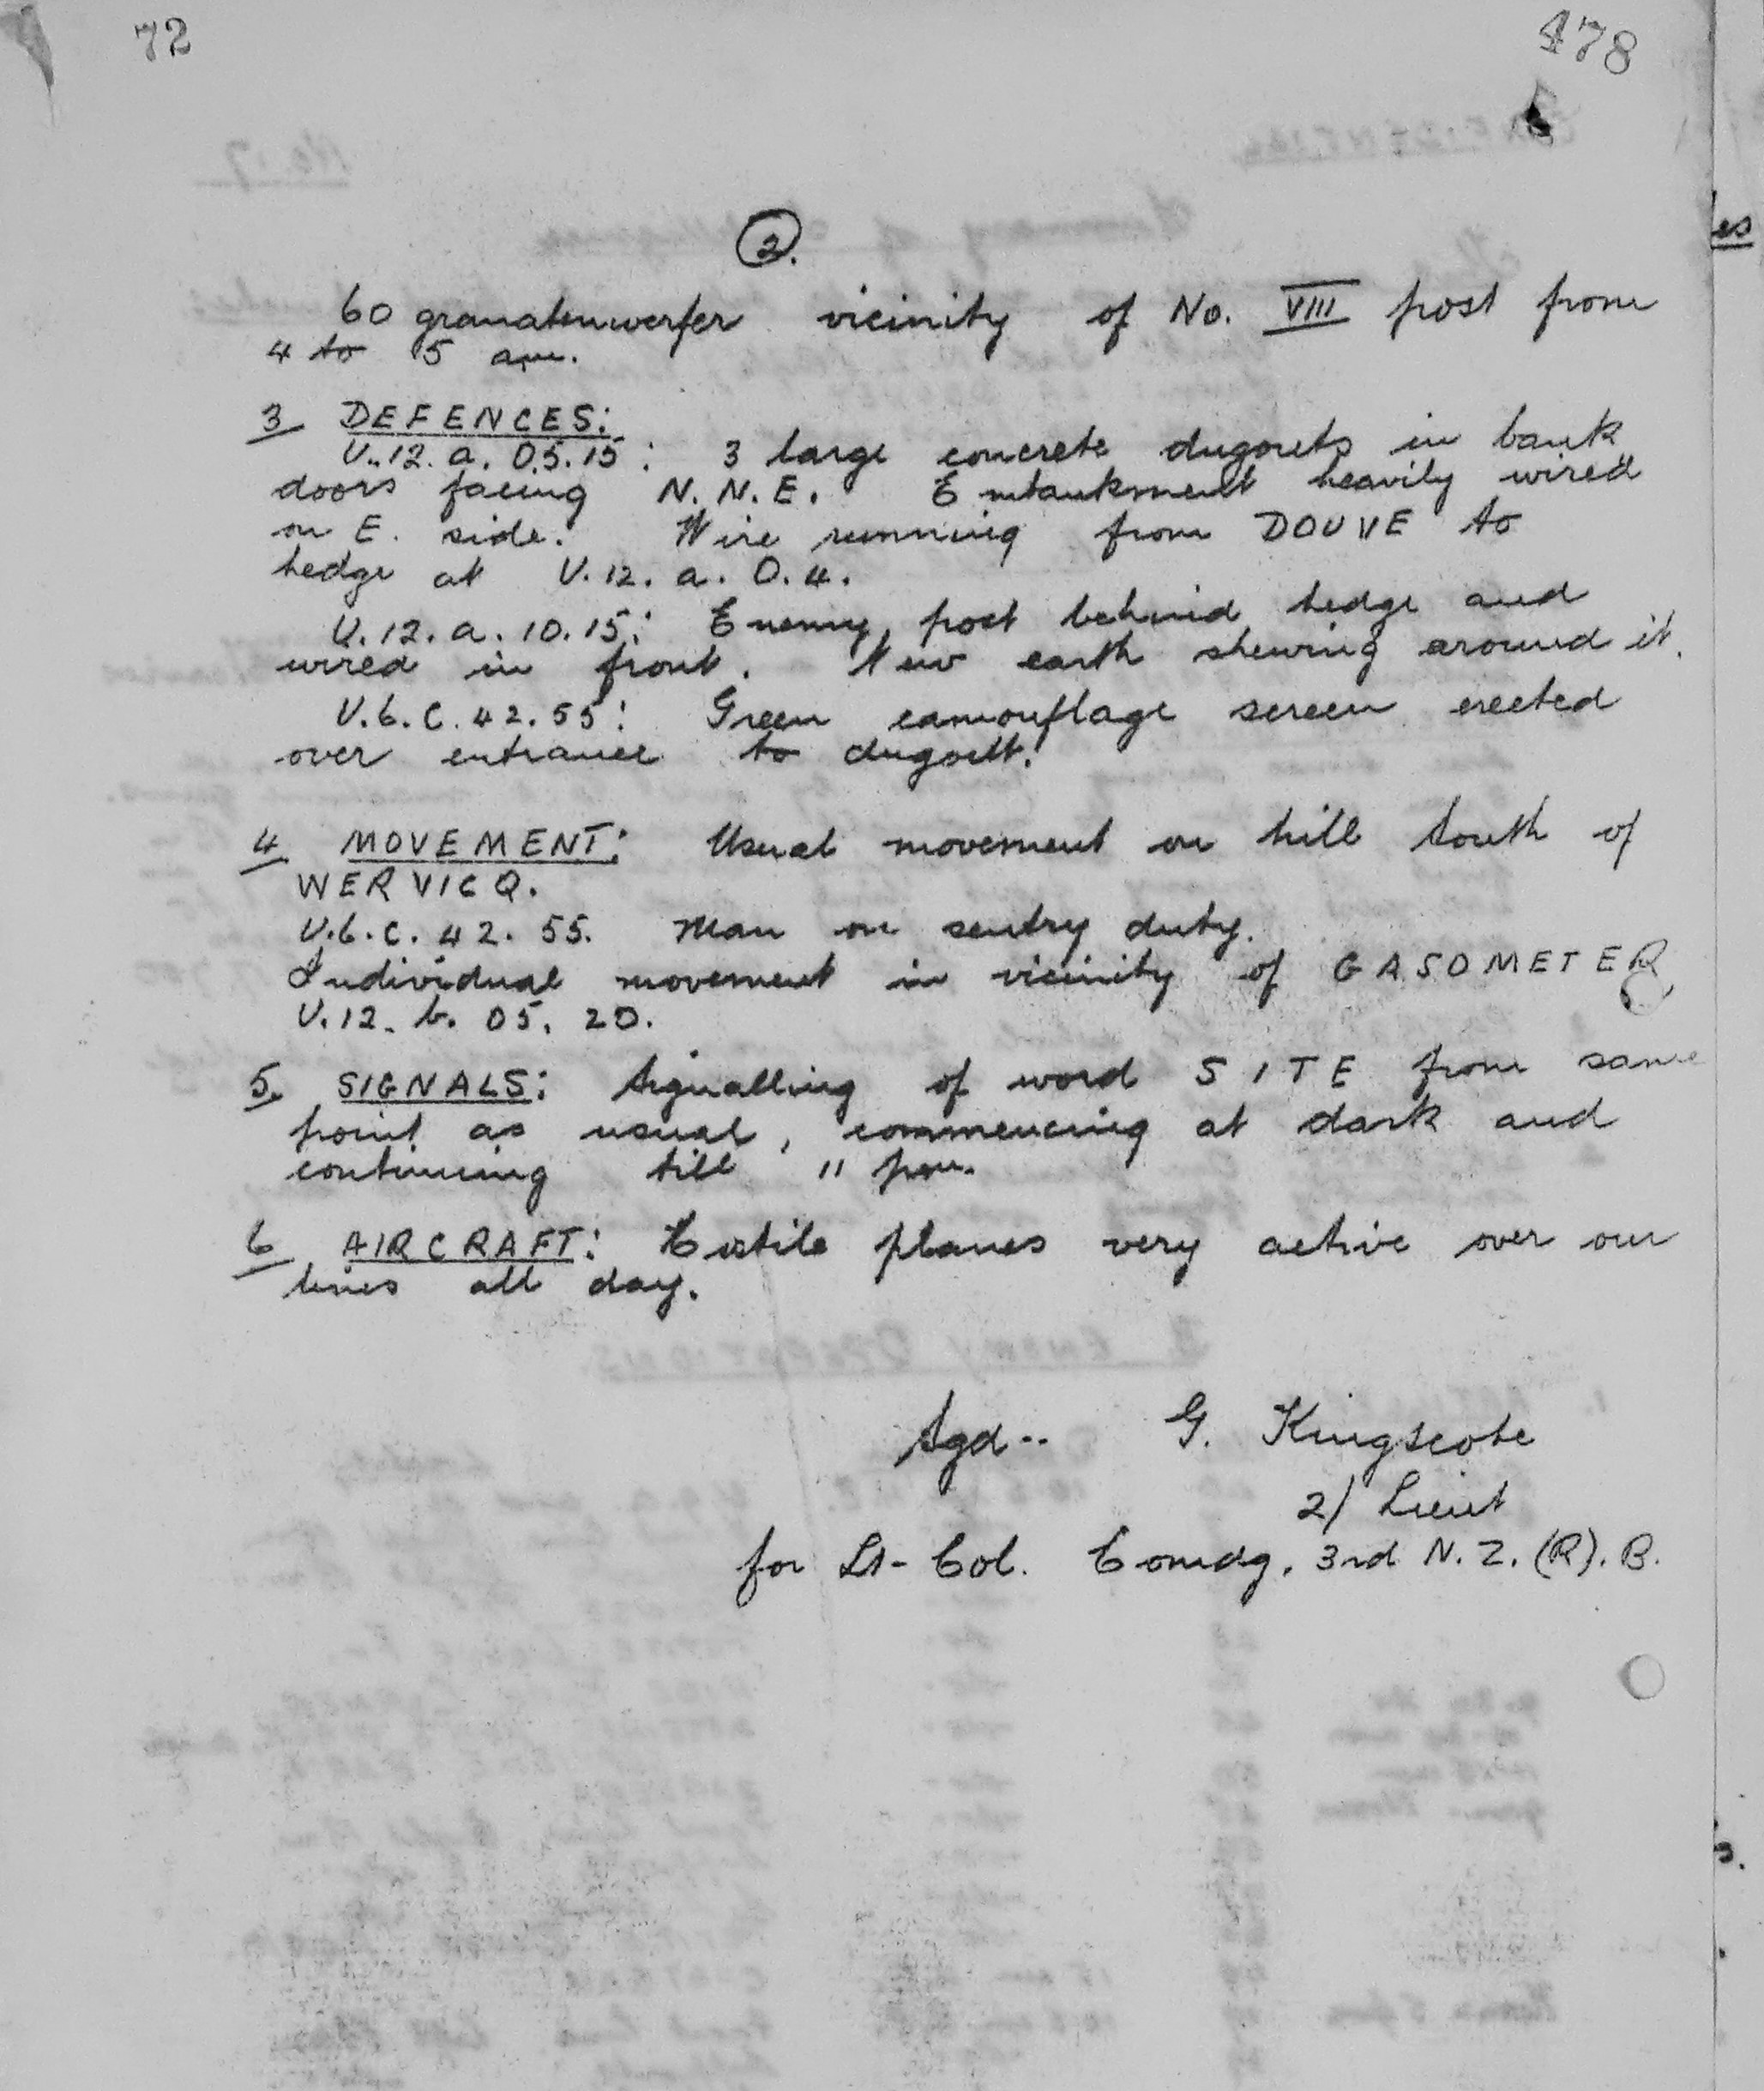 72
478
2.
60 granatenwerfer vicinity of No. VIII post from
4 to 5 am.
3 DEFENCES:
U.12.a.05.15: 3 large concrete dugouts in bank
doors facing N.N.E. Embankment heavily wired
on E. side. Wire running from DOUVE to
hedge at U.12.a.0.4.
U.12.a.10.15: Enemy post behind hedge and
wired in front. New earth shewing around it.
V.6.C.42.55: Green camouflage screen erected
over entrance to dugout.
4 MOVEMENT: Usual movement on hill South of
WERVICQ.
V.6.C.42.55. Man on sentry duty.
Individual movement in vicinity of GASOMETER
U.12.b.05.20.
5. SIGNALS: Signalling of word SITE from same
point as usual, commencing at dark and
continuing till 11 pm.
6 AIRCRAFT: Hostile planes very active over our
lines all day.
Sgd-- G. Kingscote
2/ Lieut
for Lt-Col. Comdg. 3rd N.Z.(R).B.